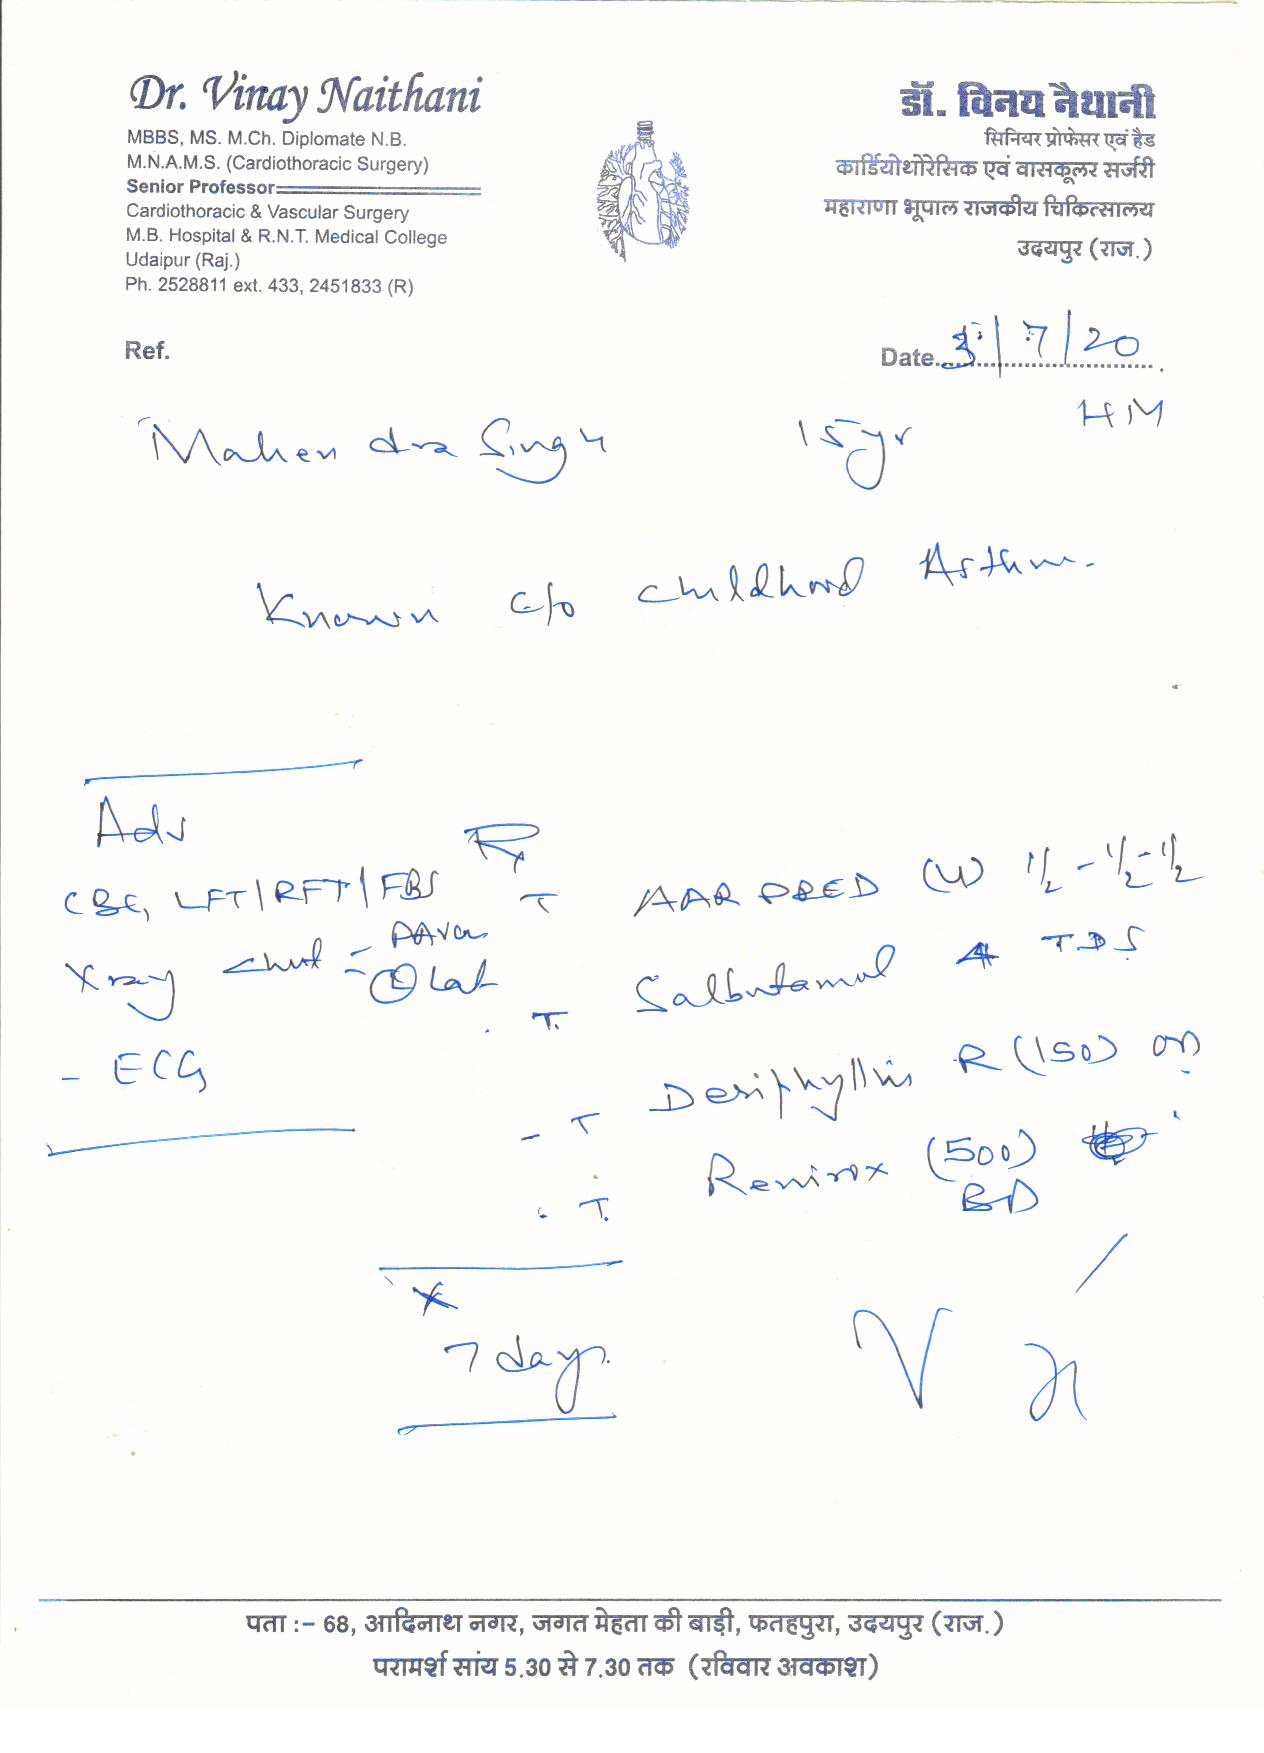 Dr. Vinay Naithani
MBBS, MS. M.Ch. Diplomate N.B.
M.N.A.M.S. (Cardiothoracic Surgery)
Senior Professor
Cardiothoracic & Vascular Surgery
M.B. Hospital & R.N.T. Medical College
Udaipur (Raj.)
Ph. 2528811 ext. 433, 2451833 (R)
डॉ. विनय नैथानी
सिनियर प्रोफेसर एवं हैड
कार्डियोथोरेसिक एवं वासकूलर सर्जरी
महाराणा भूपाल राजकीय चिकित्सालय
उदयपुर (राज.)
Ref.
Date /7/20
Mahendra Singh 15yr H M
Known c/o childhood Asthm.
Adv
CBC, LFT/RFT/FBS
Xray chest = PA view
L Lat
- ECG
Rx
T AAR PRED 1/2 - 1/2 - 1/2
T. Salbutamol 4 TDS
- T Deriphyllin R (150) OD
. T. (500)
BD
x
7 days.
पता :- 68, आदिनाथ नगर, जगत मेहता की बाड़ी, फतहपुरा, उदयपुर (राज.)
परामर्श सांय 5.30 से 7.30 तक (रविवार अवकाश)